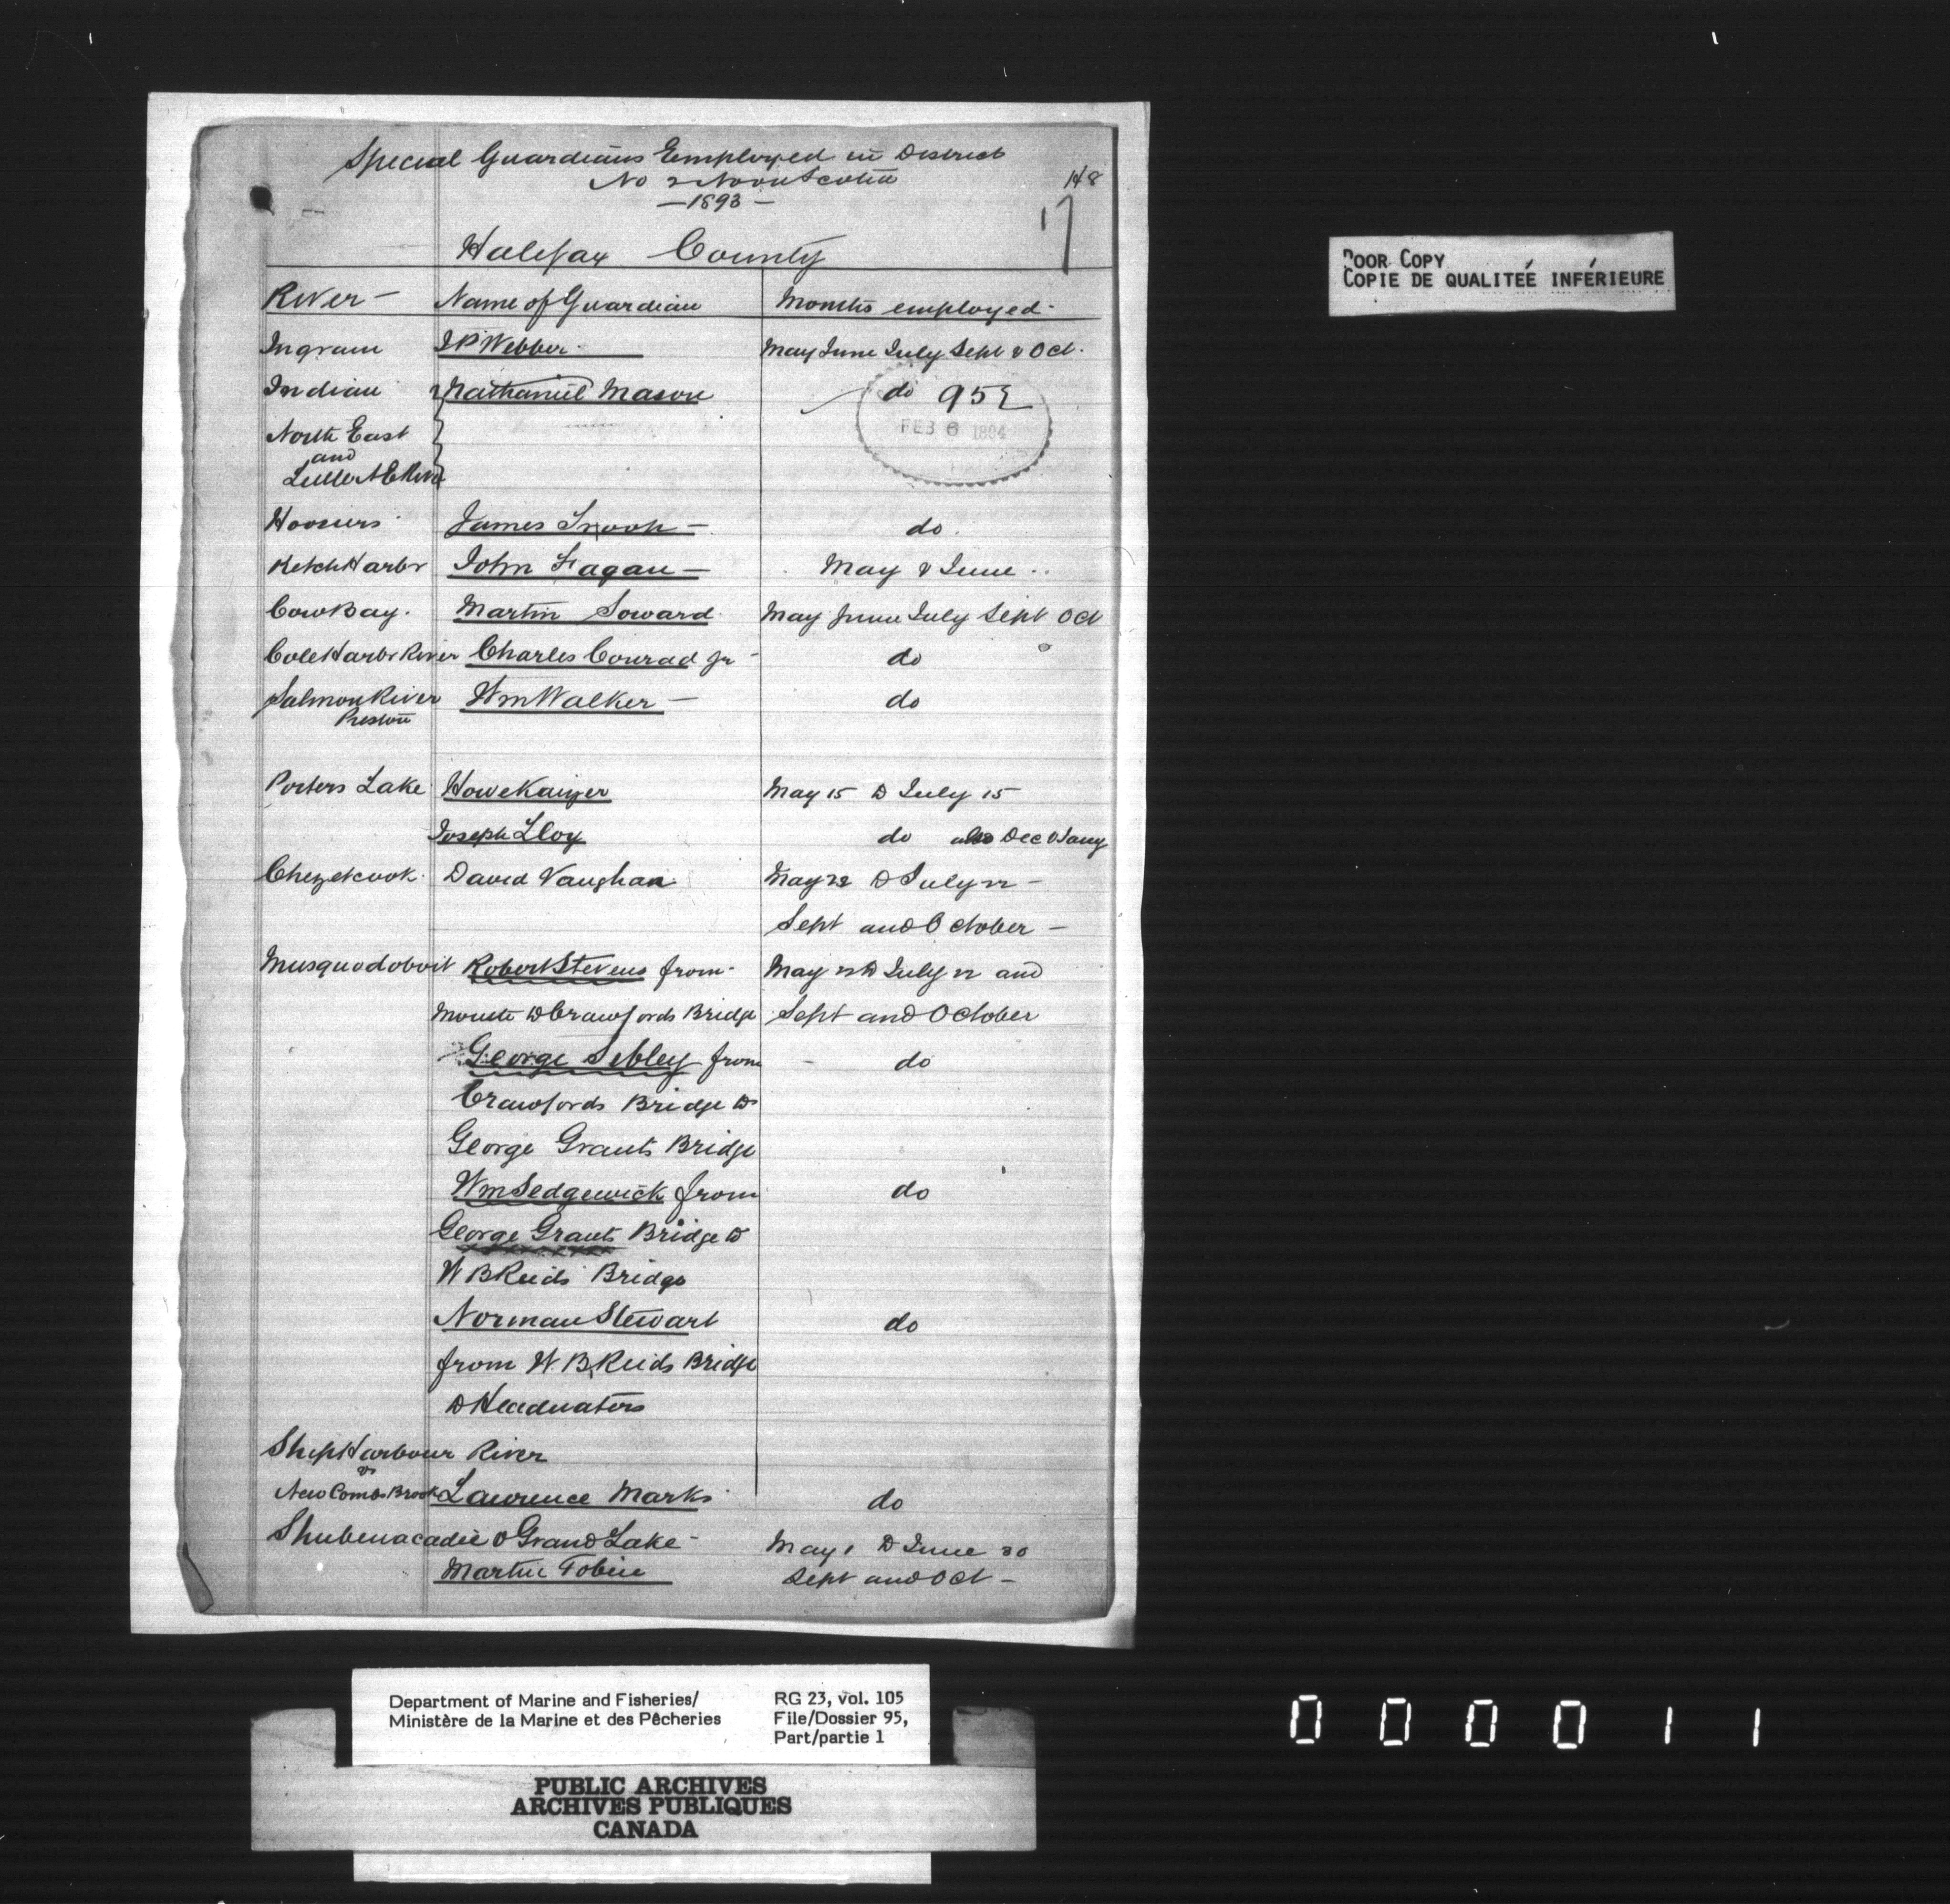 Special Guardians Employed in District
No 2 Nova Scotia
— 1893 —
148
17
Halifax County
River — Name of Guardian Months employed.
Ingram J P Webber. May June July Sept & Oct.
Indian Nathaniel Mason do 95
FEB 6 1894
North East
and
Little N E River
Hoosiers James Snook — do.
Ketch Harbr John Fagan — May & June
Cow Bay. Martin Soward May June July Sept Oct
Cole Harbr River Charles Conrad Jr do
Salmon River Wm Walker — do
Preston
Porters Lake Howe Kaizer May 15 to July 15
Joseph Lloy do also Dec & Jany
Chezetcook David Vaughan May 22 to July 22 —
Sept and October —
Musquodoboit Robert Stevens from May 22 to July 22 and
Mouth to Crawfords Bridge Sept and October
George Sibley from do
Crawfords Bridge to
George Grants Bridge
Wm Sedgewick from do
George Grants Bridge to
W B Reids Bridge
Norman Stewart do
from W. B. Reids Bridge
to Headwaters
Ship Harbour River
&
New Combs Brook Lawrence Marks do
Shubenacadie & Grand Lake — May 1 to June 30
Martin Tobin Sept and Oct —
POOR COPY
COPIE DE QUALITEÉ INFÉRIEURE
Department of Marine and Fisheries/ RG 23, vol. 105
Ministère de la Marine et des Pêcheries File/Dossier 95,
Part/partie 1
PUBLIC ARCHIVES
ARCHIVES PUBLIQUES
CANADA
000011